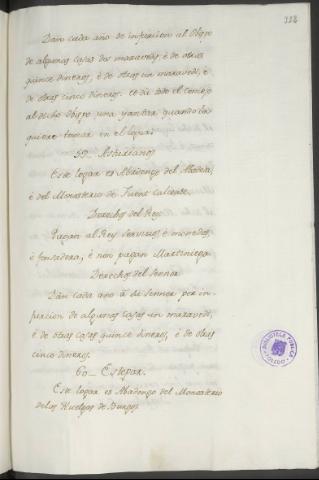 328
Dan cada año de infurcion al Obispo
de algunas casas dos maravedis, é de otras
quince dineros, é de otras un maravedi, é
de otras cinco dineros. et dá todo el Concejo
al dicho Obispo una yantar quando la
quiere tomar en el logar.
59_ Asturianos
Este logar es Abadengo del Abadesa,
é del Monasterio de Fuent Caliente.
Derechos del Rey
Pagan al Rey servicios é monedas
é fonsadera, é non pagan Martiniega
Derechos del Sennor
Dan cada año á su Sennor por in-
furcion de algunas casas un maravedi,
é de otras casas quince dineros, é de otras
cinco dineros.
60_ Estepar.
Este logar es Abadengo del Monasterio
de las Huelgas de Burgos
BIBLIOTECA PUBLICA